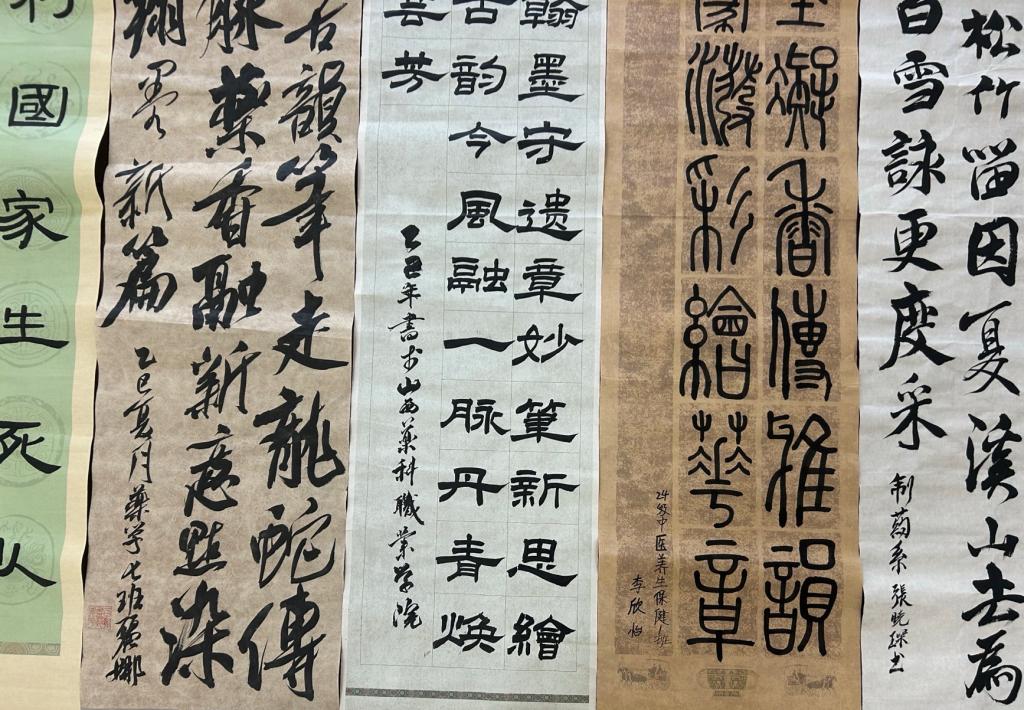 松竹畱因夏溪山去為
白雪詠更度采
制药系張晓琛书
凝香傳雅韻
潑彩繪華章
24级中医养生保健班
李欣怡
翰墨守遗章妙筆新思繪
古韵今風融一脉丹青焕
芳
乙巳年書于山西藥科職業学院
古韻筆走龍蛇傳
脉藥香融新意點染
墨新篇
乙巳夏月藥学七班
利國家生死以